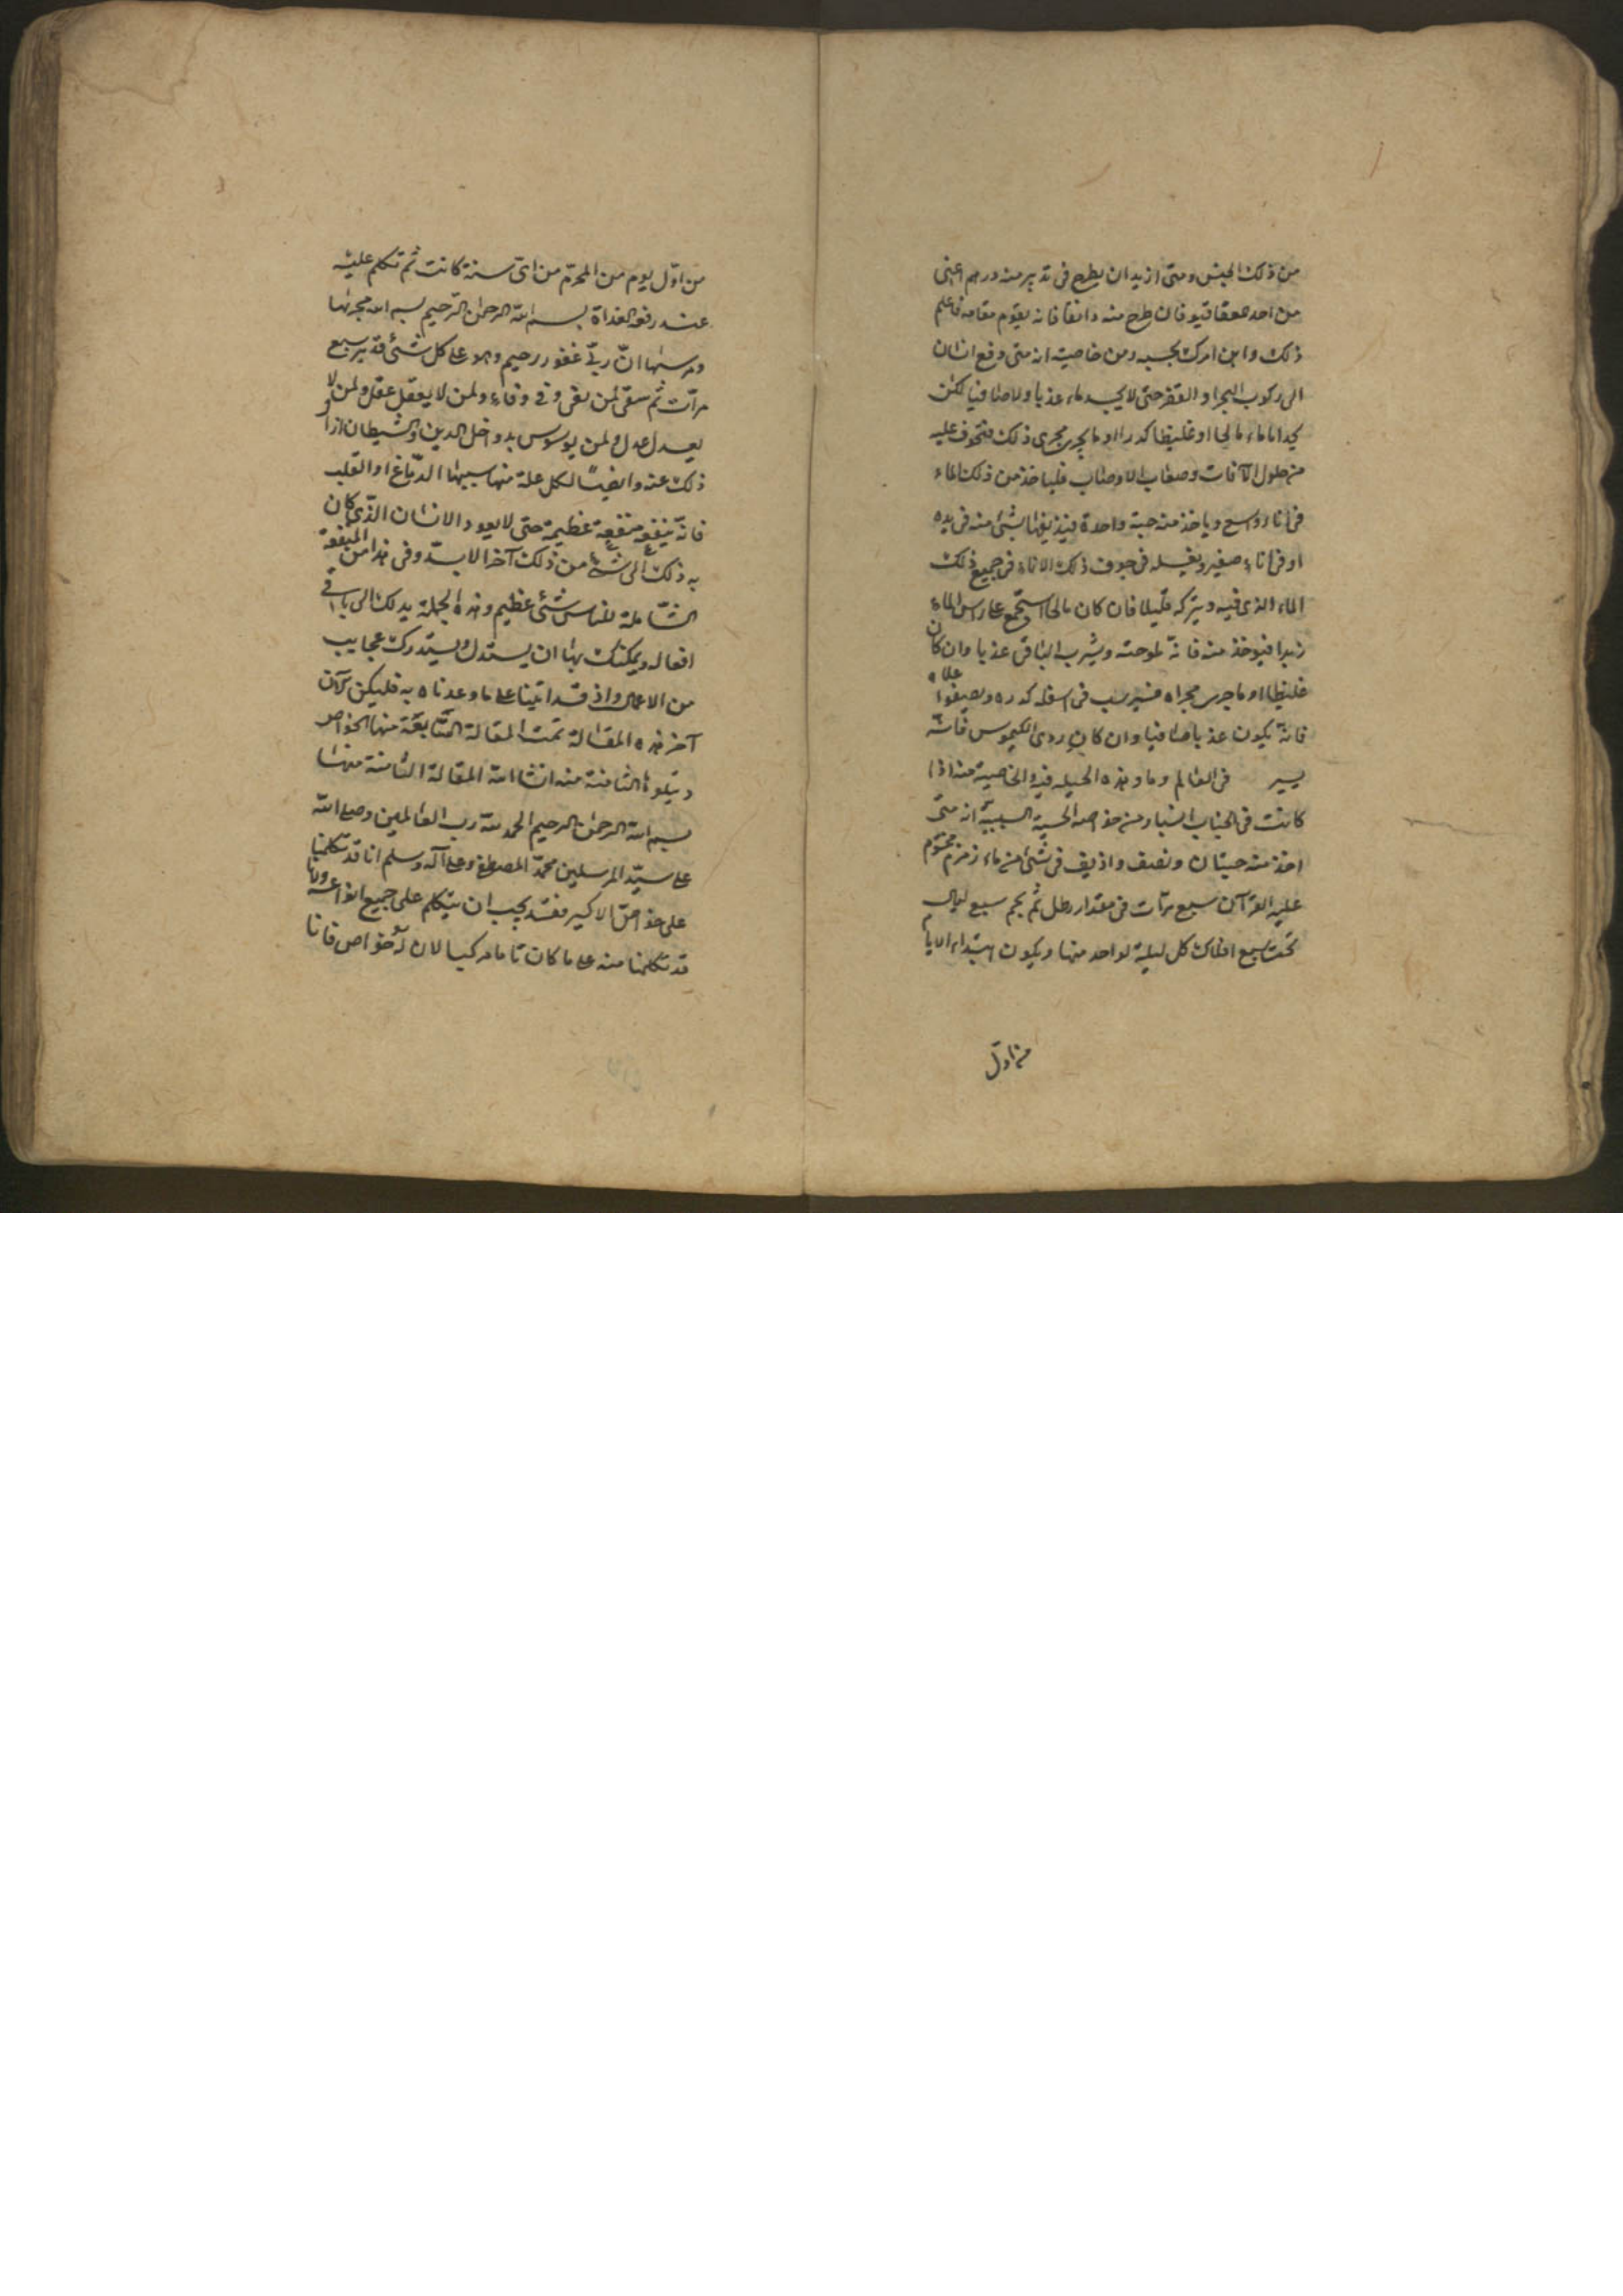 من ذلك الجنس ومتى ازيد ان يطرح فى تدبير منه درهم اعنى
من احد فان طرح منه دانقا فانه يقوم مقامه فاعلم
ذلك وابن امرك بحسبه ومن خاصيته انه متى وقع انسان
الى ركوب البحر او القفز حتى لا يجد ماء عذبا ولا صافيا لكن
يجد اما ماء مالحا او غليظا كدرا او ما يجرى مجرى ذلك فتخوف عليه
من حلول الآفات وصعاب الاوصاب فلياخذ من ذلك الماء
فى اناء واسع وياخذ منه حبة واحدة فيذيفها بشئ منه فى يده
او فى اناء صغير ويغسله فى جوف ذلك الاناء فى جميع ذلك
الماء الذى فيه ويتركه قليلا فان كان مالحا استجمع على راس الماء
زبدا فيوخذ منه فانه لموحته ويشرب الباقى عذبا وان كان
غليظا او ما جرى مجراه فيرسب فى اسفله كدره ويصفوا اعلاه
فانه يكون عذبا صافيا وان كان ردى الكيموس فانه
يسير فى العالم وما هذه الحيله فيه والخاصية منه اذا
كانت فى ومن خواصه الحسية السببية انه متى
اخذ منه حبتان ونصف واذيف فى شئ من ماء زمزم مختوم
عليه القرآن سبع مرآت فى مقدار رطل ثم نجم سبع ليال
تحت سبع افلاك كل ليلة لواحد منها ويكون ابتداء الايام
من اول
من اوّل يوم من المحرّم من اىّ سنة كانت ثم تكلم عليه
عند رفعه الغداة بسم الله الرحمن الرحيم بسم الله مجراها
ومرسها ان ربّى غفور رحيم وهو على كل شئ قدير سبع
مرآت ثم سقى لمن بقى وفى وفاء ولمن لا يعقل عقل ولمن لا
يعدل عدل ولمن يوسوس به داخل الدين والشيطان ازال
ذلك عنه وايضًا لكل علة منها سببها الدماغ او القلب
فانّه ينفعه منفعة عظيمة حتى لا يعود الانسان الذى كان
به ذلك الى شئ من ذلك آخر الابد وفى هذا من المنفعة
الشاملة للناس شئ عظيم وهذه الجملة يدلك الى باقى
افعاله ويمكنك بها ان يستدل ويستدرك عجايب
من الاعمال واذ قد اتينا على ما وعدنا به فليكن الآن
آخر هذه المقالة تمت المقالة السابعة منها الخواص
ويتلوها الثامنة منه انشا الله المقالة الثامنة منها
بسم الله الرحمن الرحيم الحمد لله رب العالمين وصلى الله
على سيّد المرسلين محمّد المصطفى وعلى آله وسلم انا قد تكلمنا
على خواصّ الاكسير فقد يجب ان يتكلم على جميع انواعه ولانا
قد تكلمنا منه على ما كان تاما مركبا لان له خواص فانا